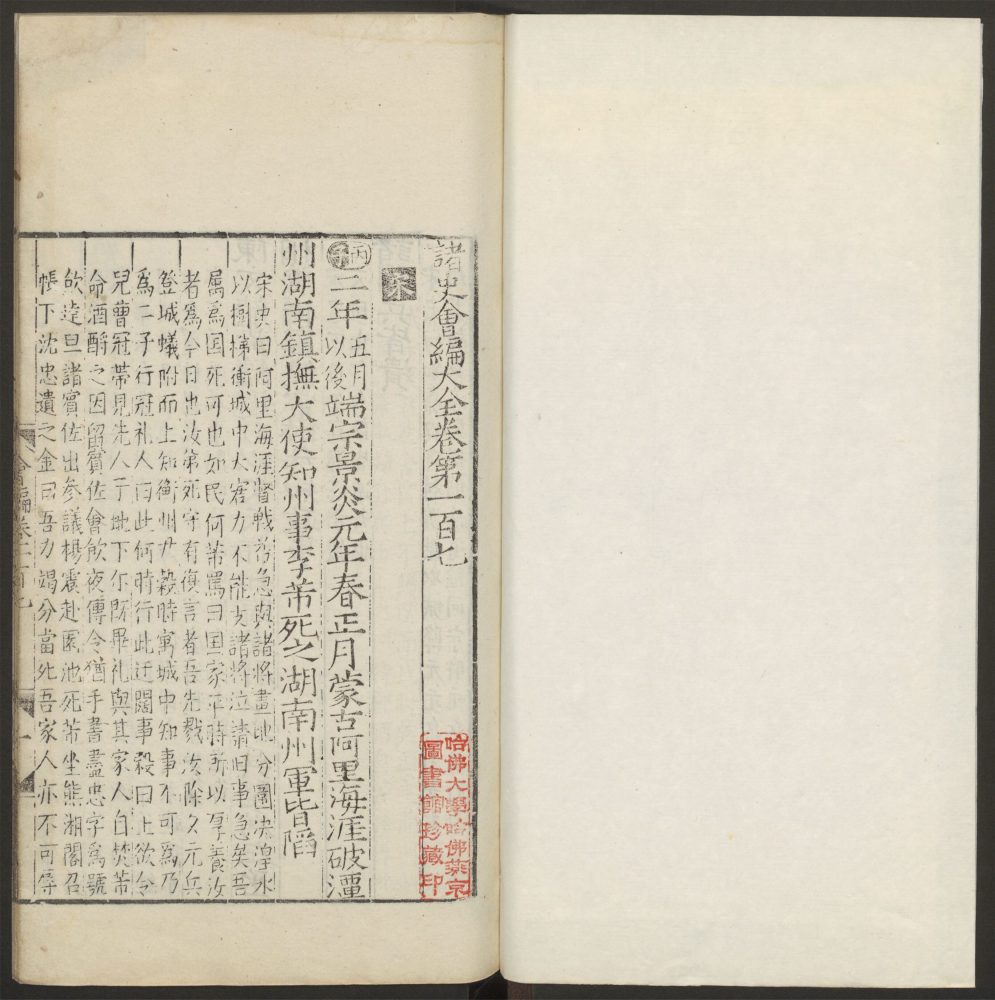 諸史會編大全卷第一百七
哈佛大學哈佛燕京
圖書館珍藏印
宋
丙子二年五月以後端宗景炎元年春正月蒙古阿里海涯破潭
州湖南鎮撫大使知州事李芾死之湖南州軍皆陷
宋史曰阿里海涯督戰益急與諸將畫地分圍决湟水
以樹梯衝城中大窘力不能支諸將泣請曰事急矣吾
属爲国死可也如民何芾罵曰国家平時所以厚養汝
者爲今日也汝第死守有復言者吾先戮汝除夕元兵
登城蟻附而上知衡州尹穀時寓城中知事不可爲乃
爲二子行冠礼人曰此何時行此迂闊事穀曰上欲令
兒曹冠帶見先人于地下尔既畢礼與其家人自焚芾
命酒酹之因留賓佐會飲夜傳令猶手書盡忠字爲號
飲達旦諸賓佐出参議楊震赴園池死芾坐熊湘閣召
帳下沈忠遺之金曰吾力竭分當死吾家人亦不可辱
會編卷一百七
一